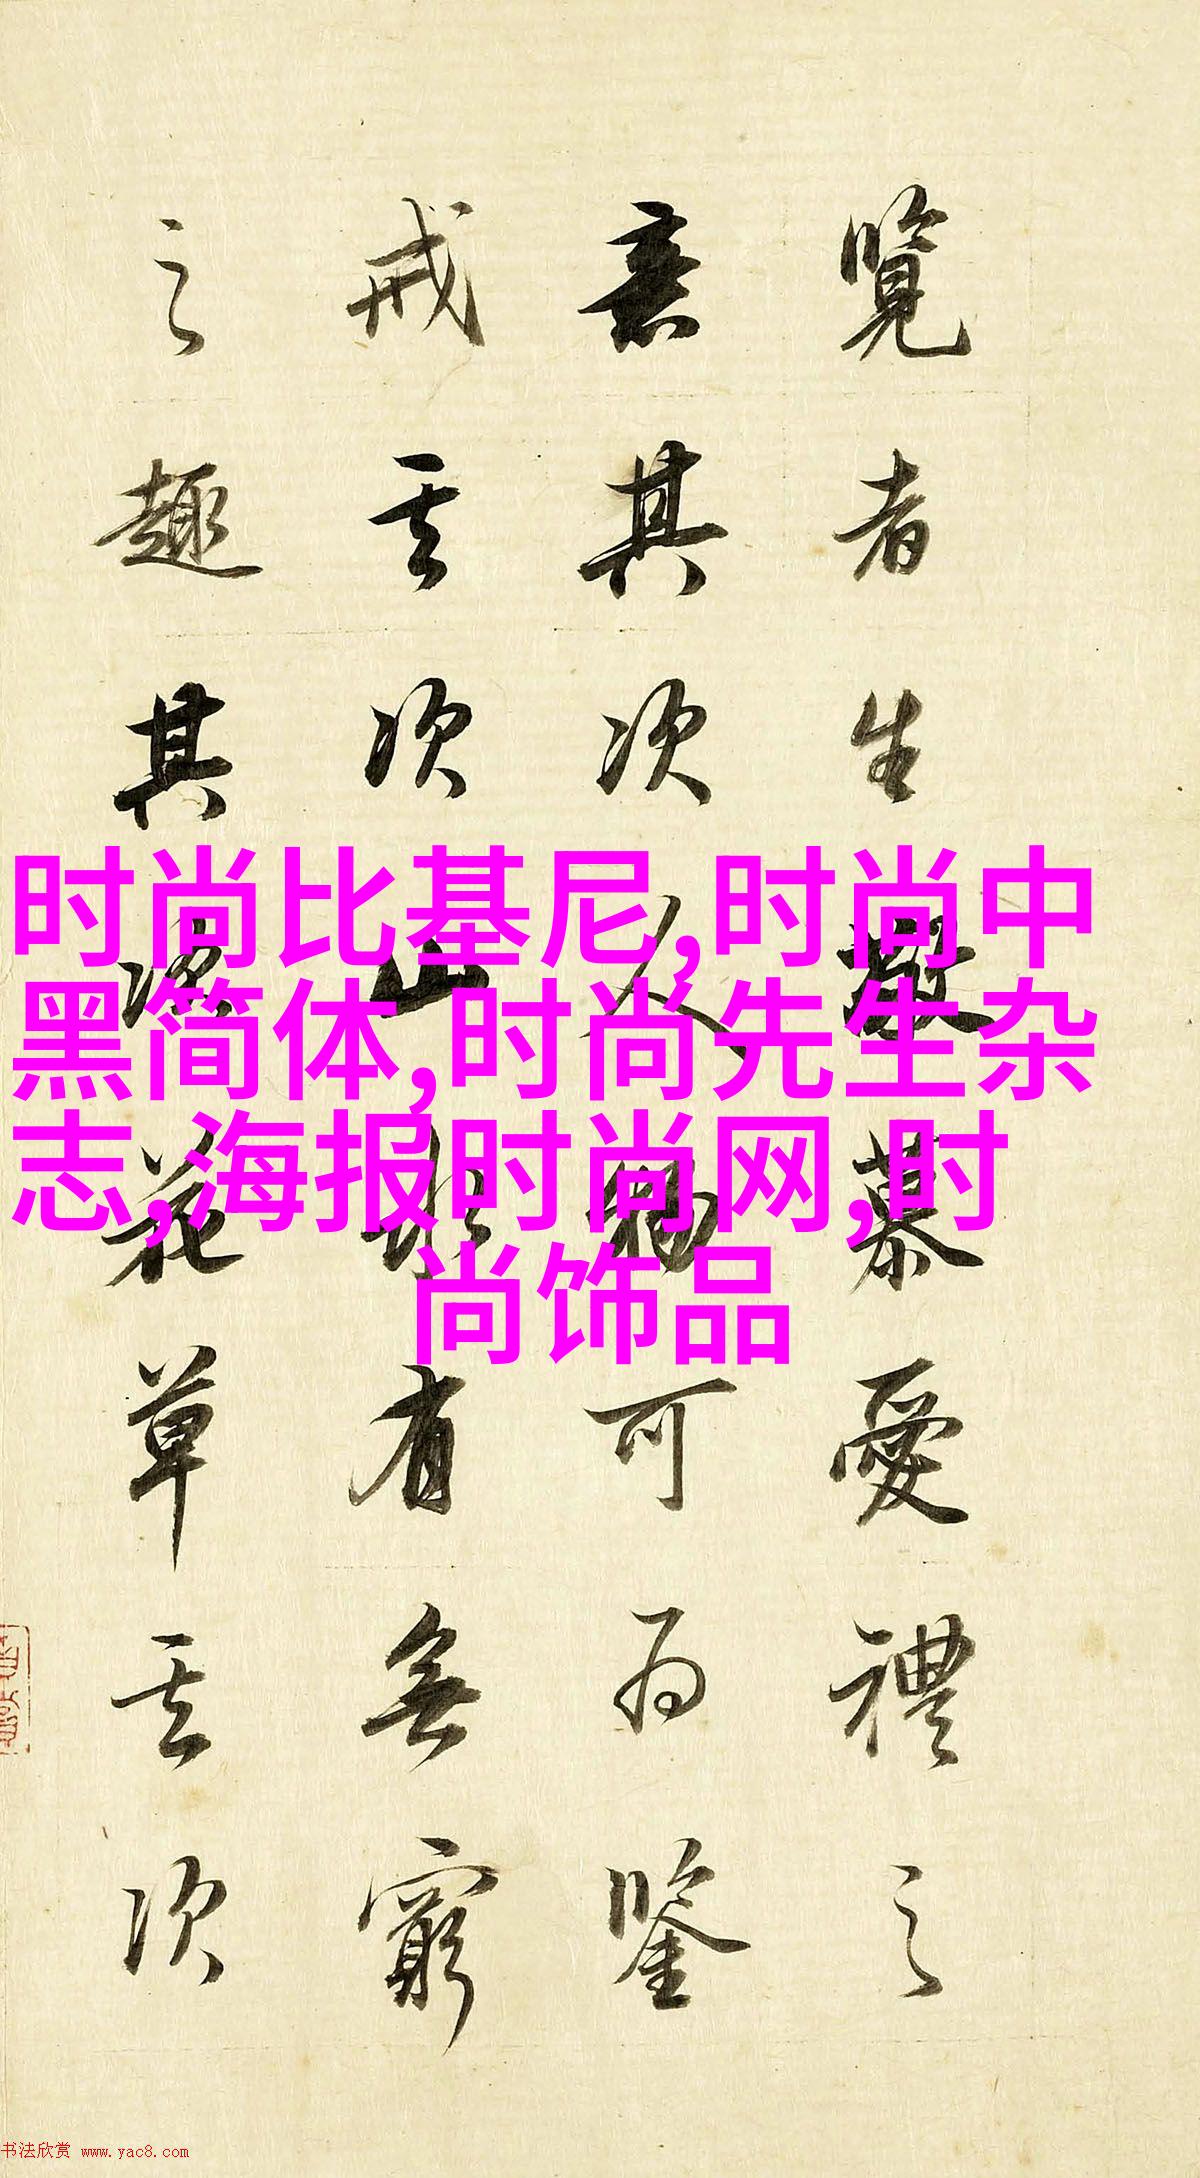 覽者生敬慕愛禮之
意其次人物可為鑒
戒其次山水有無窮
之趣其次花草其次
时尚比基尼,时尚中
黑简体,时尚先生杂
志,海报时尚网,时
尚饰品
书法欣赏 www.yac8.com